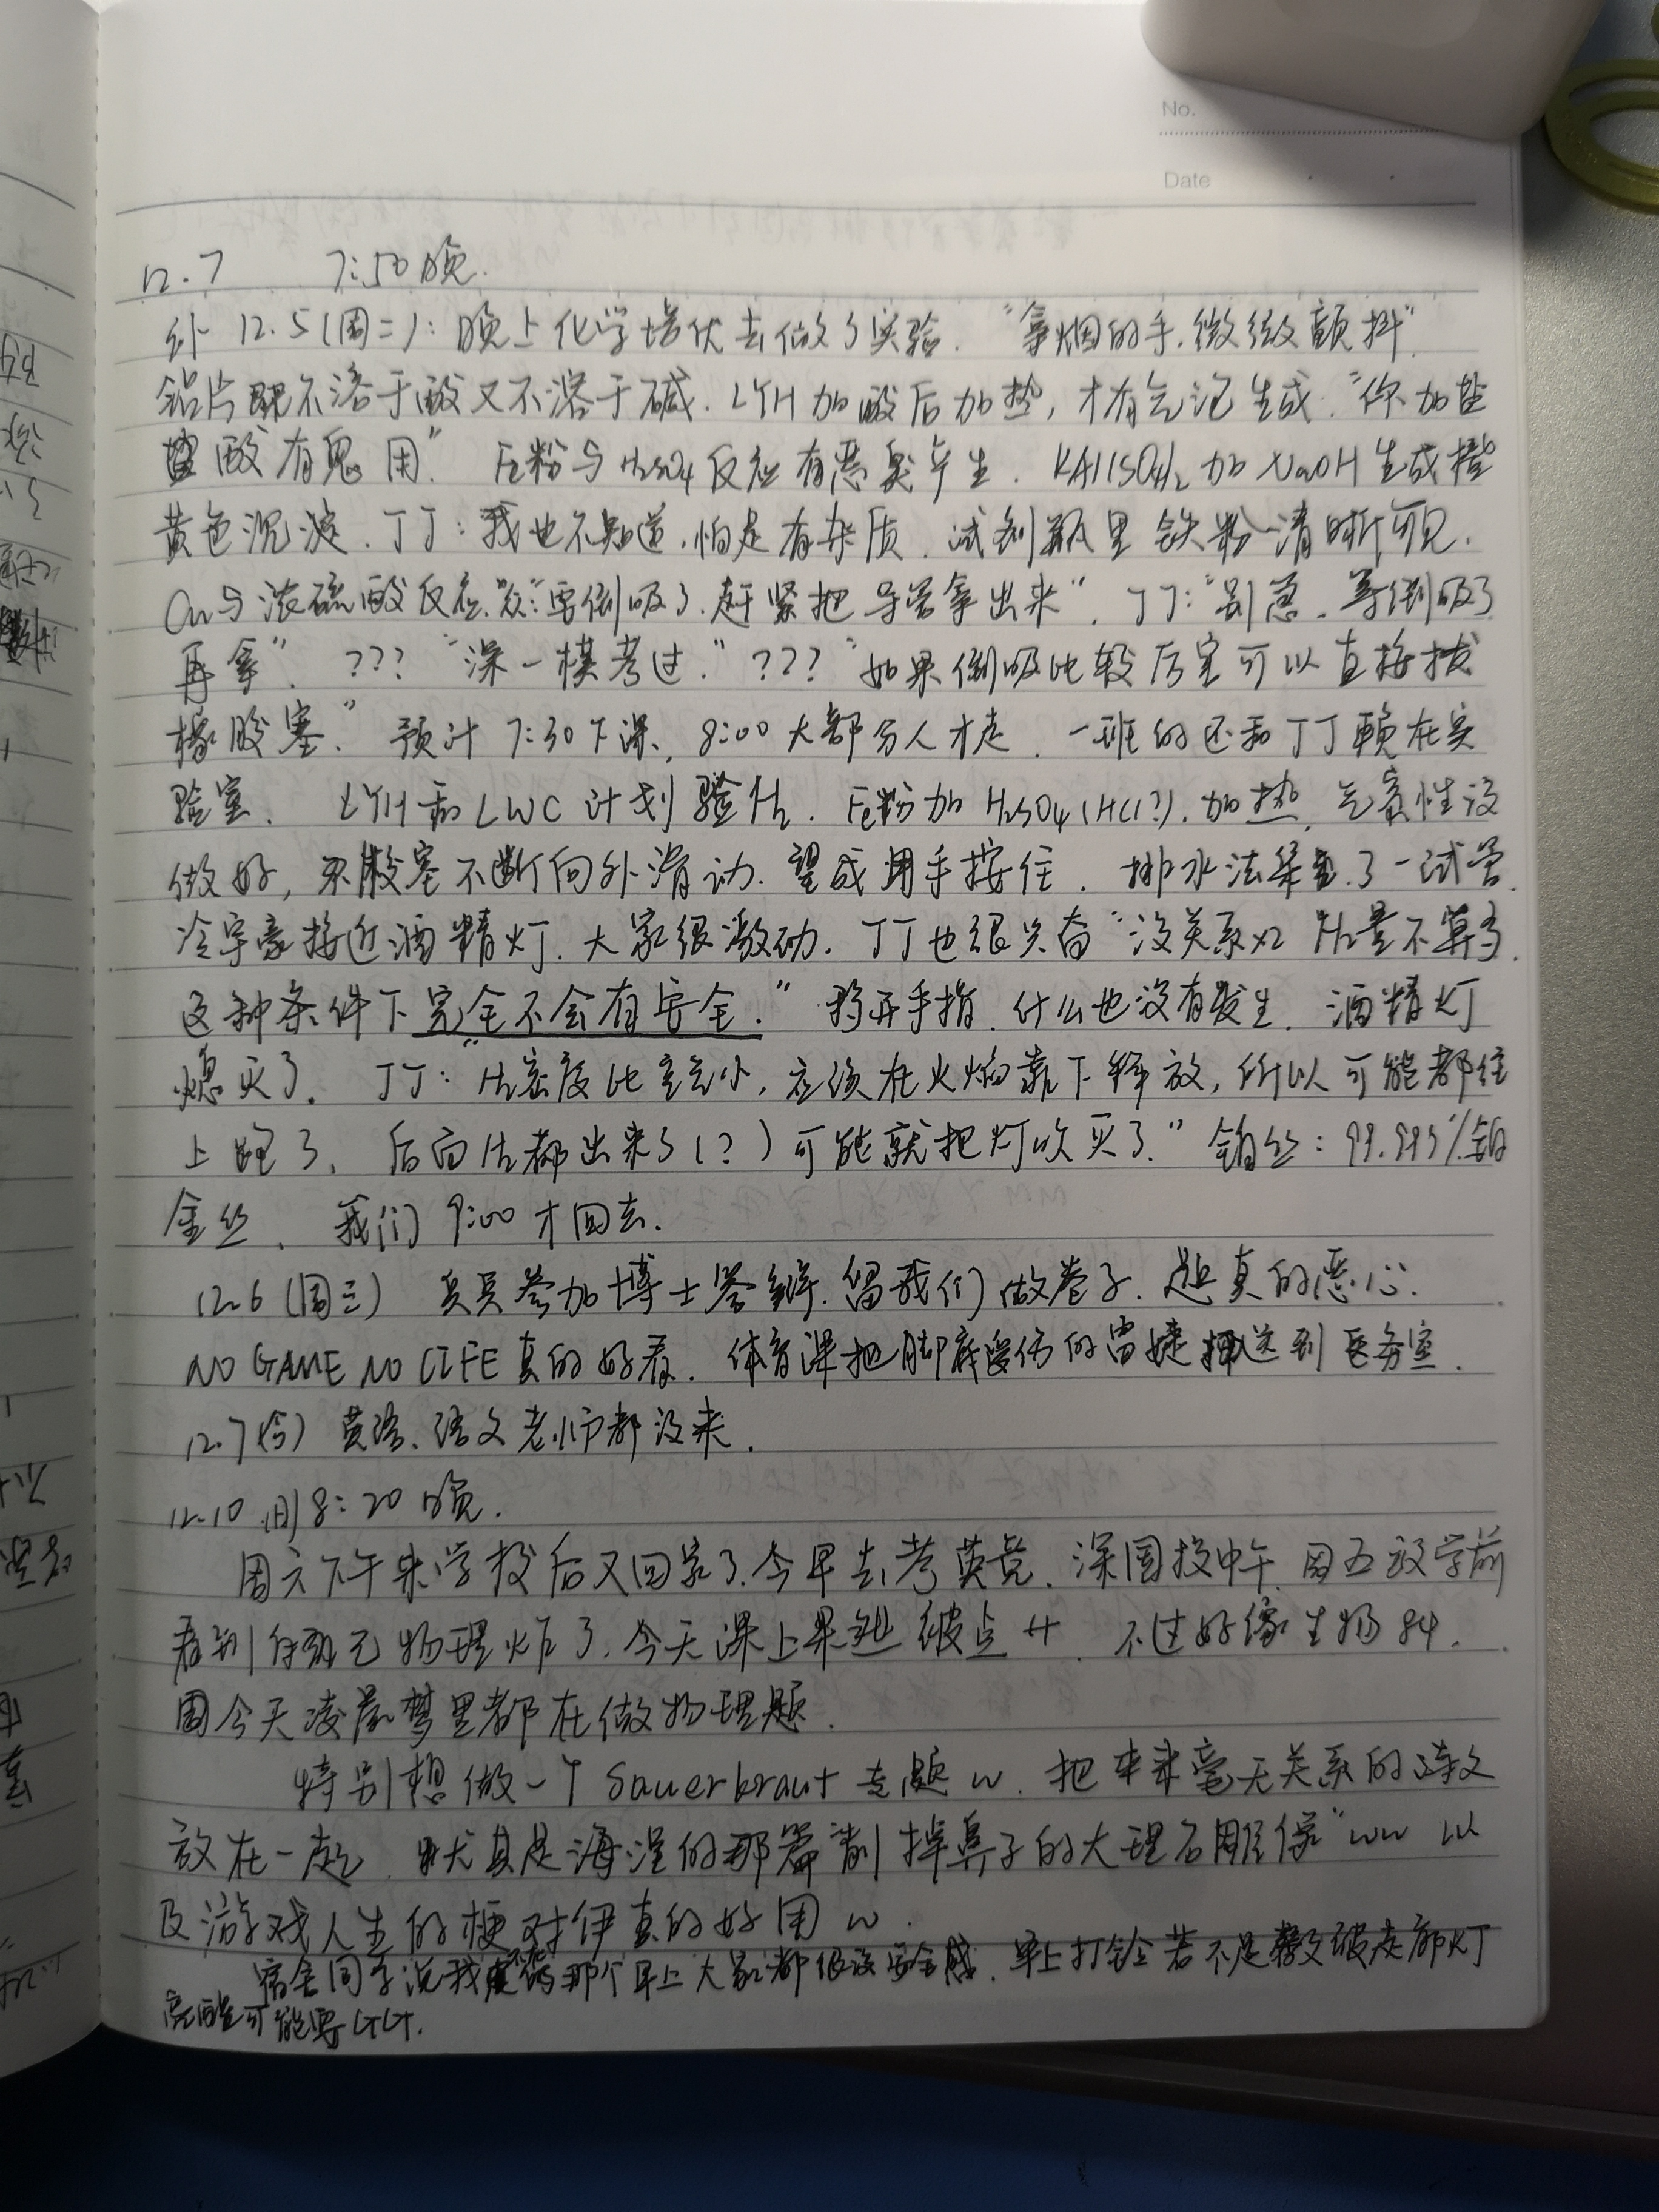 No.
Date
12.7 7:50 晚.
补 12.5(周二): 晚上化学培优去做了实验. "拿烟的手,微微颤抖"
铝片既不溶于酸又不溶于碱. LYH 加酸后加热, 才有气泡生成. "你加盐
酸有鬼用" Fe粉与H2SO4反应有恶臭产生. KAl(SO4)2 加 NaOH 生成橙
黄色沉淀. 丁丁: 我也不知道, 怕是有杂质. 试剂瓶里铁粉清晰可见.
Cu与浓硫酸反应. 众: "要倒吸了, 赶紧把导管拿出来". 丁丁: "别急, 等倒吸了
再拿". ??? "深一模考过." ??? "如果倒吸比较厉害可以直接拔
橡胶塞." 预计 7:30下课, 8:00 大部分人才走. 一班的还和丁丁赖在实
验室. LYH 和 LWC 计划验H2. Fe粉加 H2SO4(HCl?), 加热, 气密性没
做好, 胶塞不断向外滑动. 望成用手按住. 排水法集了一试管.
冷宇豪接近酒精灯. 大家很激动. 丁丁也很兴奋 "没关系x2 H2量不算多,
这种条件下完全不会有安全." 移开手指, 什么也没有发生, 酒精灯
熄灭了. 丁丁: "H2密度比空气小, 应该在火焰靠下释放, 所以可能都往
上跑了, 后面H2都出来了(?)可能就把灯吹灭了." 铂丝: 99.99%铂
金丝. 我们 9:00 才回去.
12.6 (周三) 参加博士答辩, 留我们做卷子. 题真的恶心.
NO GAME NO LIFE 真的好看. 体育课把脚底受伤的送到医务室.
12.7(今) 英语、语文老师都没来.
12.10 周日 8:20 晚.
周六下午来学校后又回家了, 今早去考英竞, 深国投中午. 周五放学前
看到自己物理炸了, 今天课上果然被点. 不过好像生物 84.
今天凌晨梦里都在做物理题.
特别想做一个 Sauerkraut 专题 w. 把本来毫无关系的诗文
放在一起. 尤其是海涅的那篇"削掉鼻子的大理石雕像" ww 以
及游戏人生的梗对伊真的好用 w.
宿舍同学说我那个早上大家都很没安全感. 早上打铃若不是被走廊灯
亮醒可能要GG.